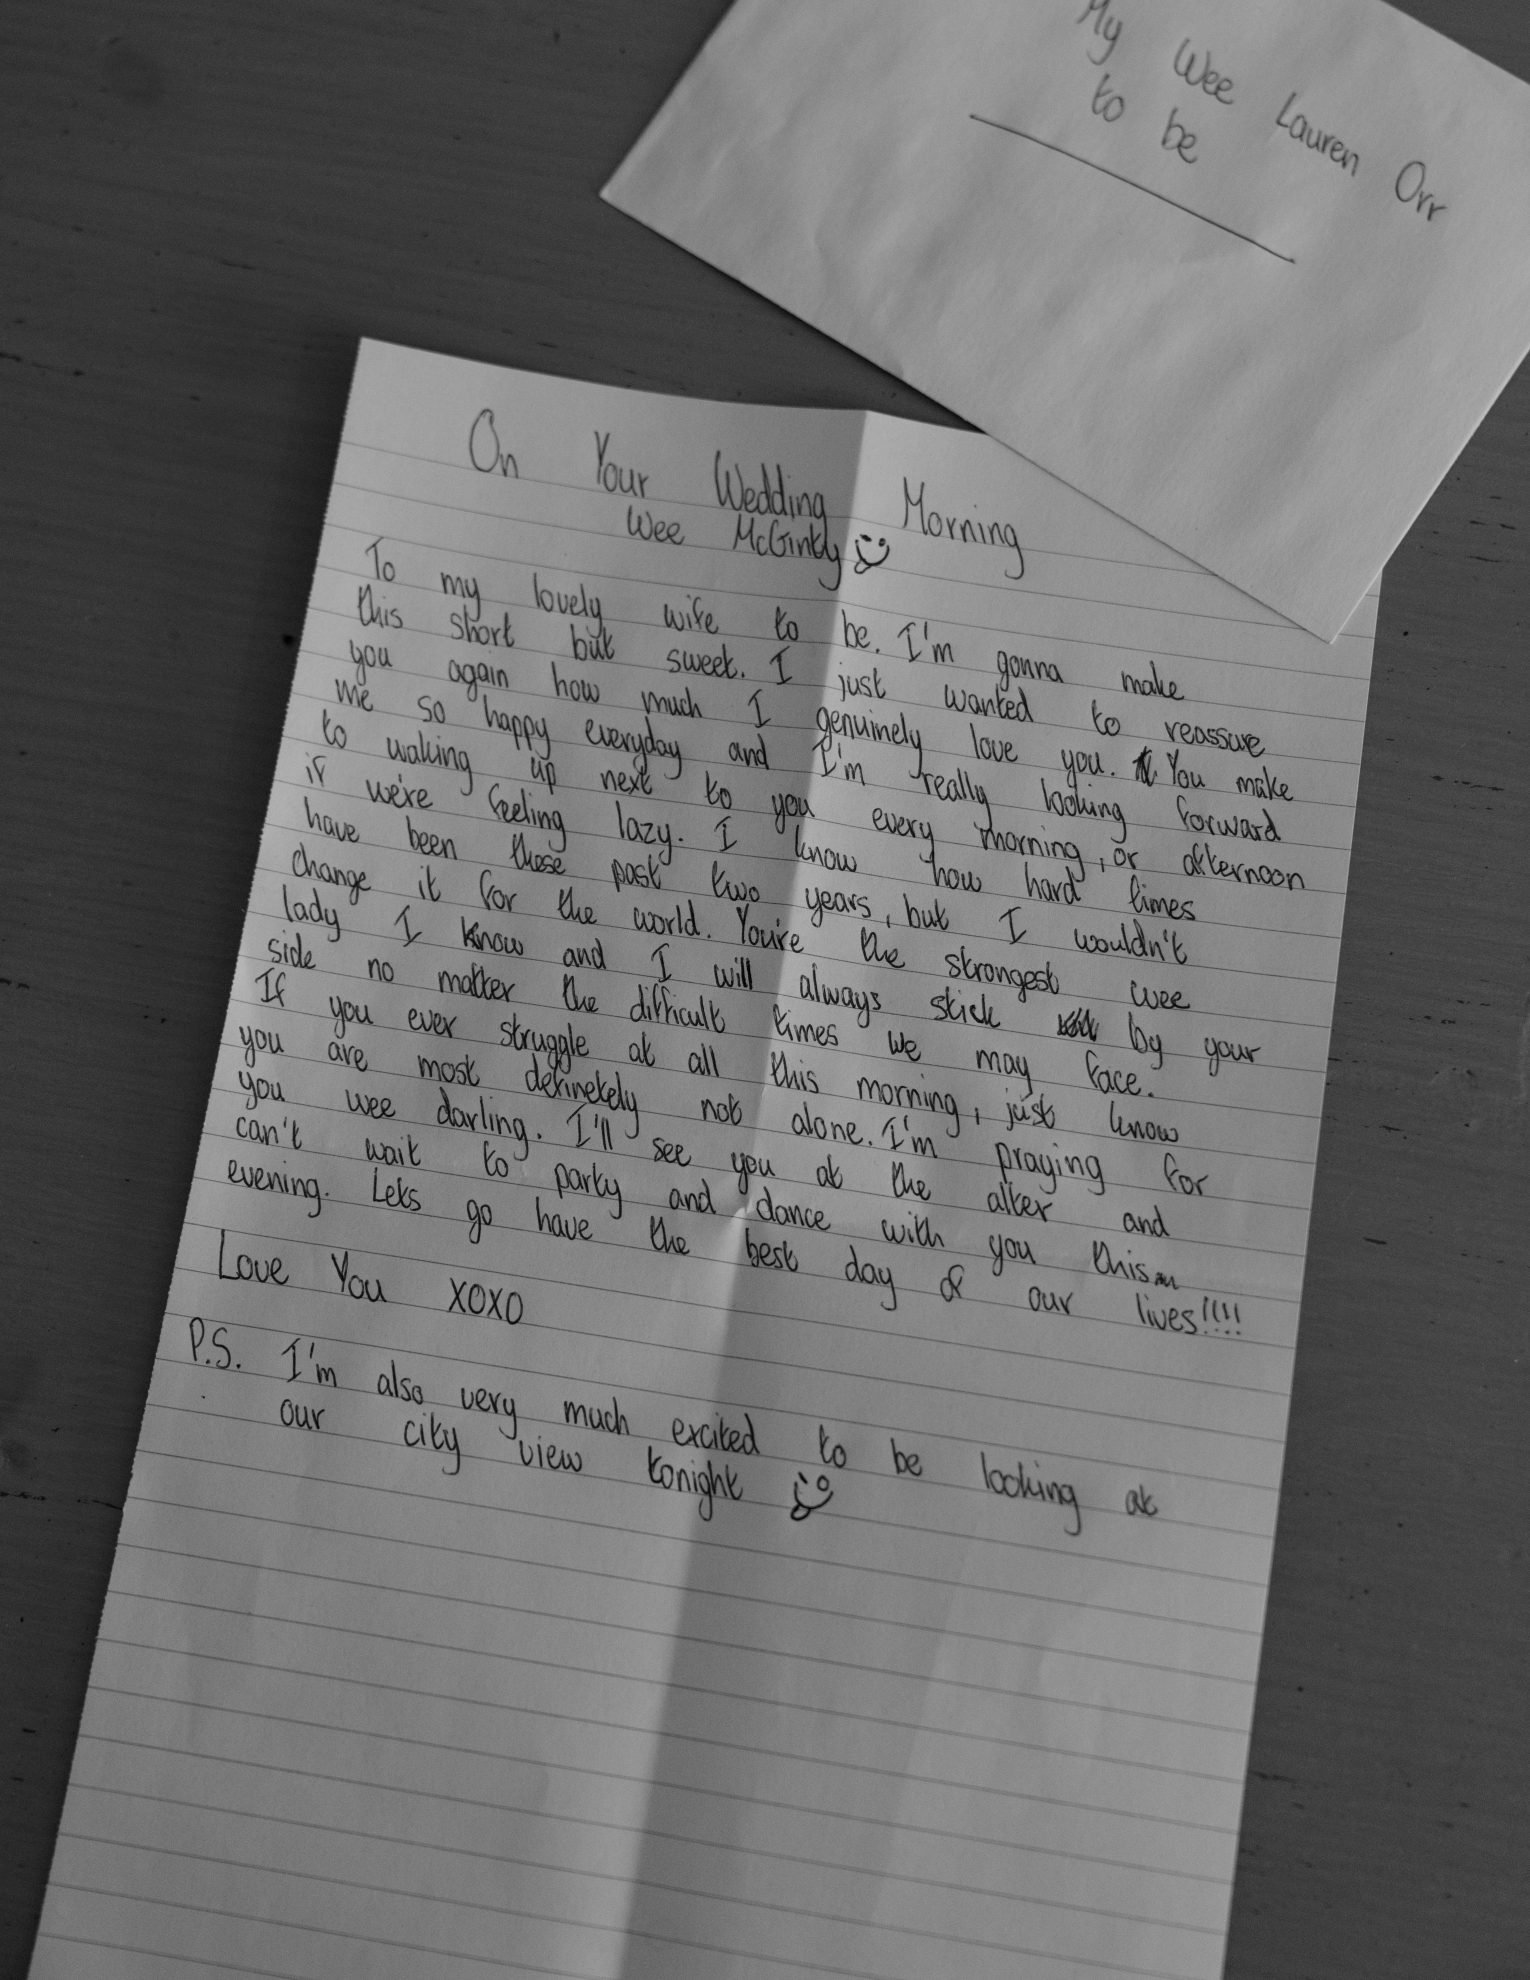 My Wee Lauren Orr
to be
On Your Wedding Morning
Wee McGinty
To my lovely wife to be. I'm gonna make
this short but sweet. I just wanted to reassure
you again how much I genuinely love you. You make
me so happy everyday and I'm really looking forward
to waking up next to you every morning, or afternoon
if we're feeling lazy. I know how hard times
have been these past two years, but I wouldn't
change it for the world. You're the strongest wee
lady I know and I will always stick by your
side no matter the difficult times we may face.
If you ever struggle at all this morning, just know
you are most definetely not alone. I'm praying for
you wee darling. I'll see you at the alter and
can't wait to party and dance with you this
evening. Lets go have the best day of our lives!!!!
Love You XOXO
P.S. I'm also very much excited to be looking at
our city view tonight